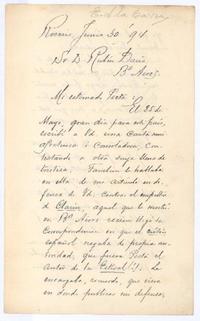 Rosario, Junio 30/94.
Sr D. Rubén Darío
Bs Aires.
Mi estimado Poeta:
El 25 de
Mayo, gran día para este país,
escribí a Ud. una carta muy
afectuosa i consoladora, con-
testando a otra suya llena de
tristeza. También le hablaba
en ella de mi artículo en de-
fensa de Ud. contra el
de Clarín, aquel que le mostré
en Bs Aires recién llegó la
correspondencia en que el crítico
español negaba de propia au-
toridad, que fuera Poeta el
autor de la
encargaba, recuerdo, que viera
en donde publicar mi defensa,